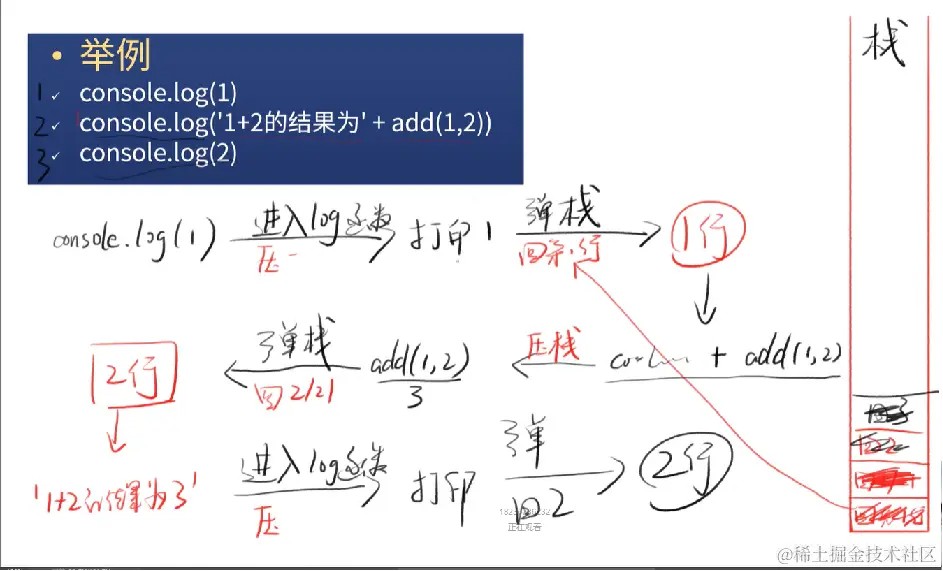 • 举例
1 ✓ console.log(1)
2 ✓ console.log('1+2的结果为' + add(1,2))
3 ✓ console.log(2)
栈
console.log(1) 进入log函数 打印1 弹栈 1行
压 回第1行
2行 弹栈 add(1,2) 压栈 + add(1,2)
回2行 3
'1+2的结果为3' 进入log函数 打印 弹 2行
压 回2
正在观看
@稀土掘金技术社区